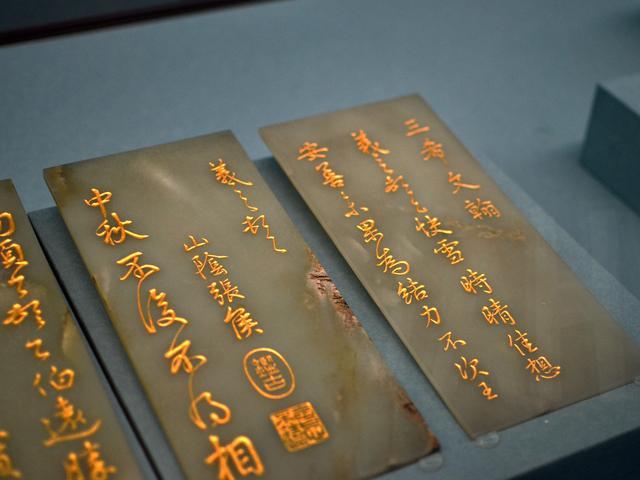 三希文翰
羲之頓首快雪時晴佳想
安善未果為結力不次王
羲之頓首
山陰張侯
中秋不復不得相
頓首伯遠勝